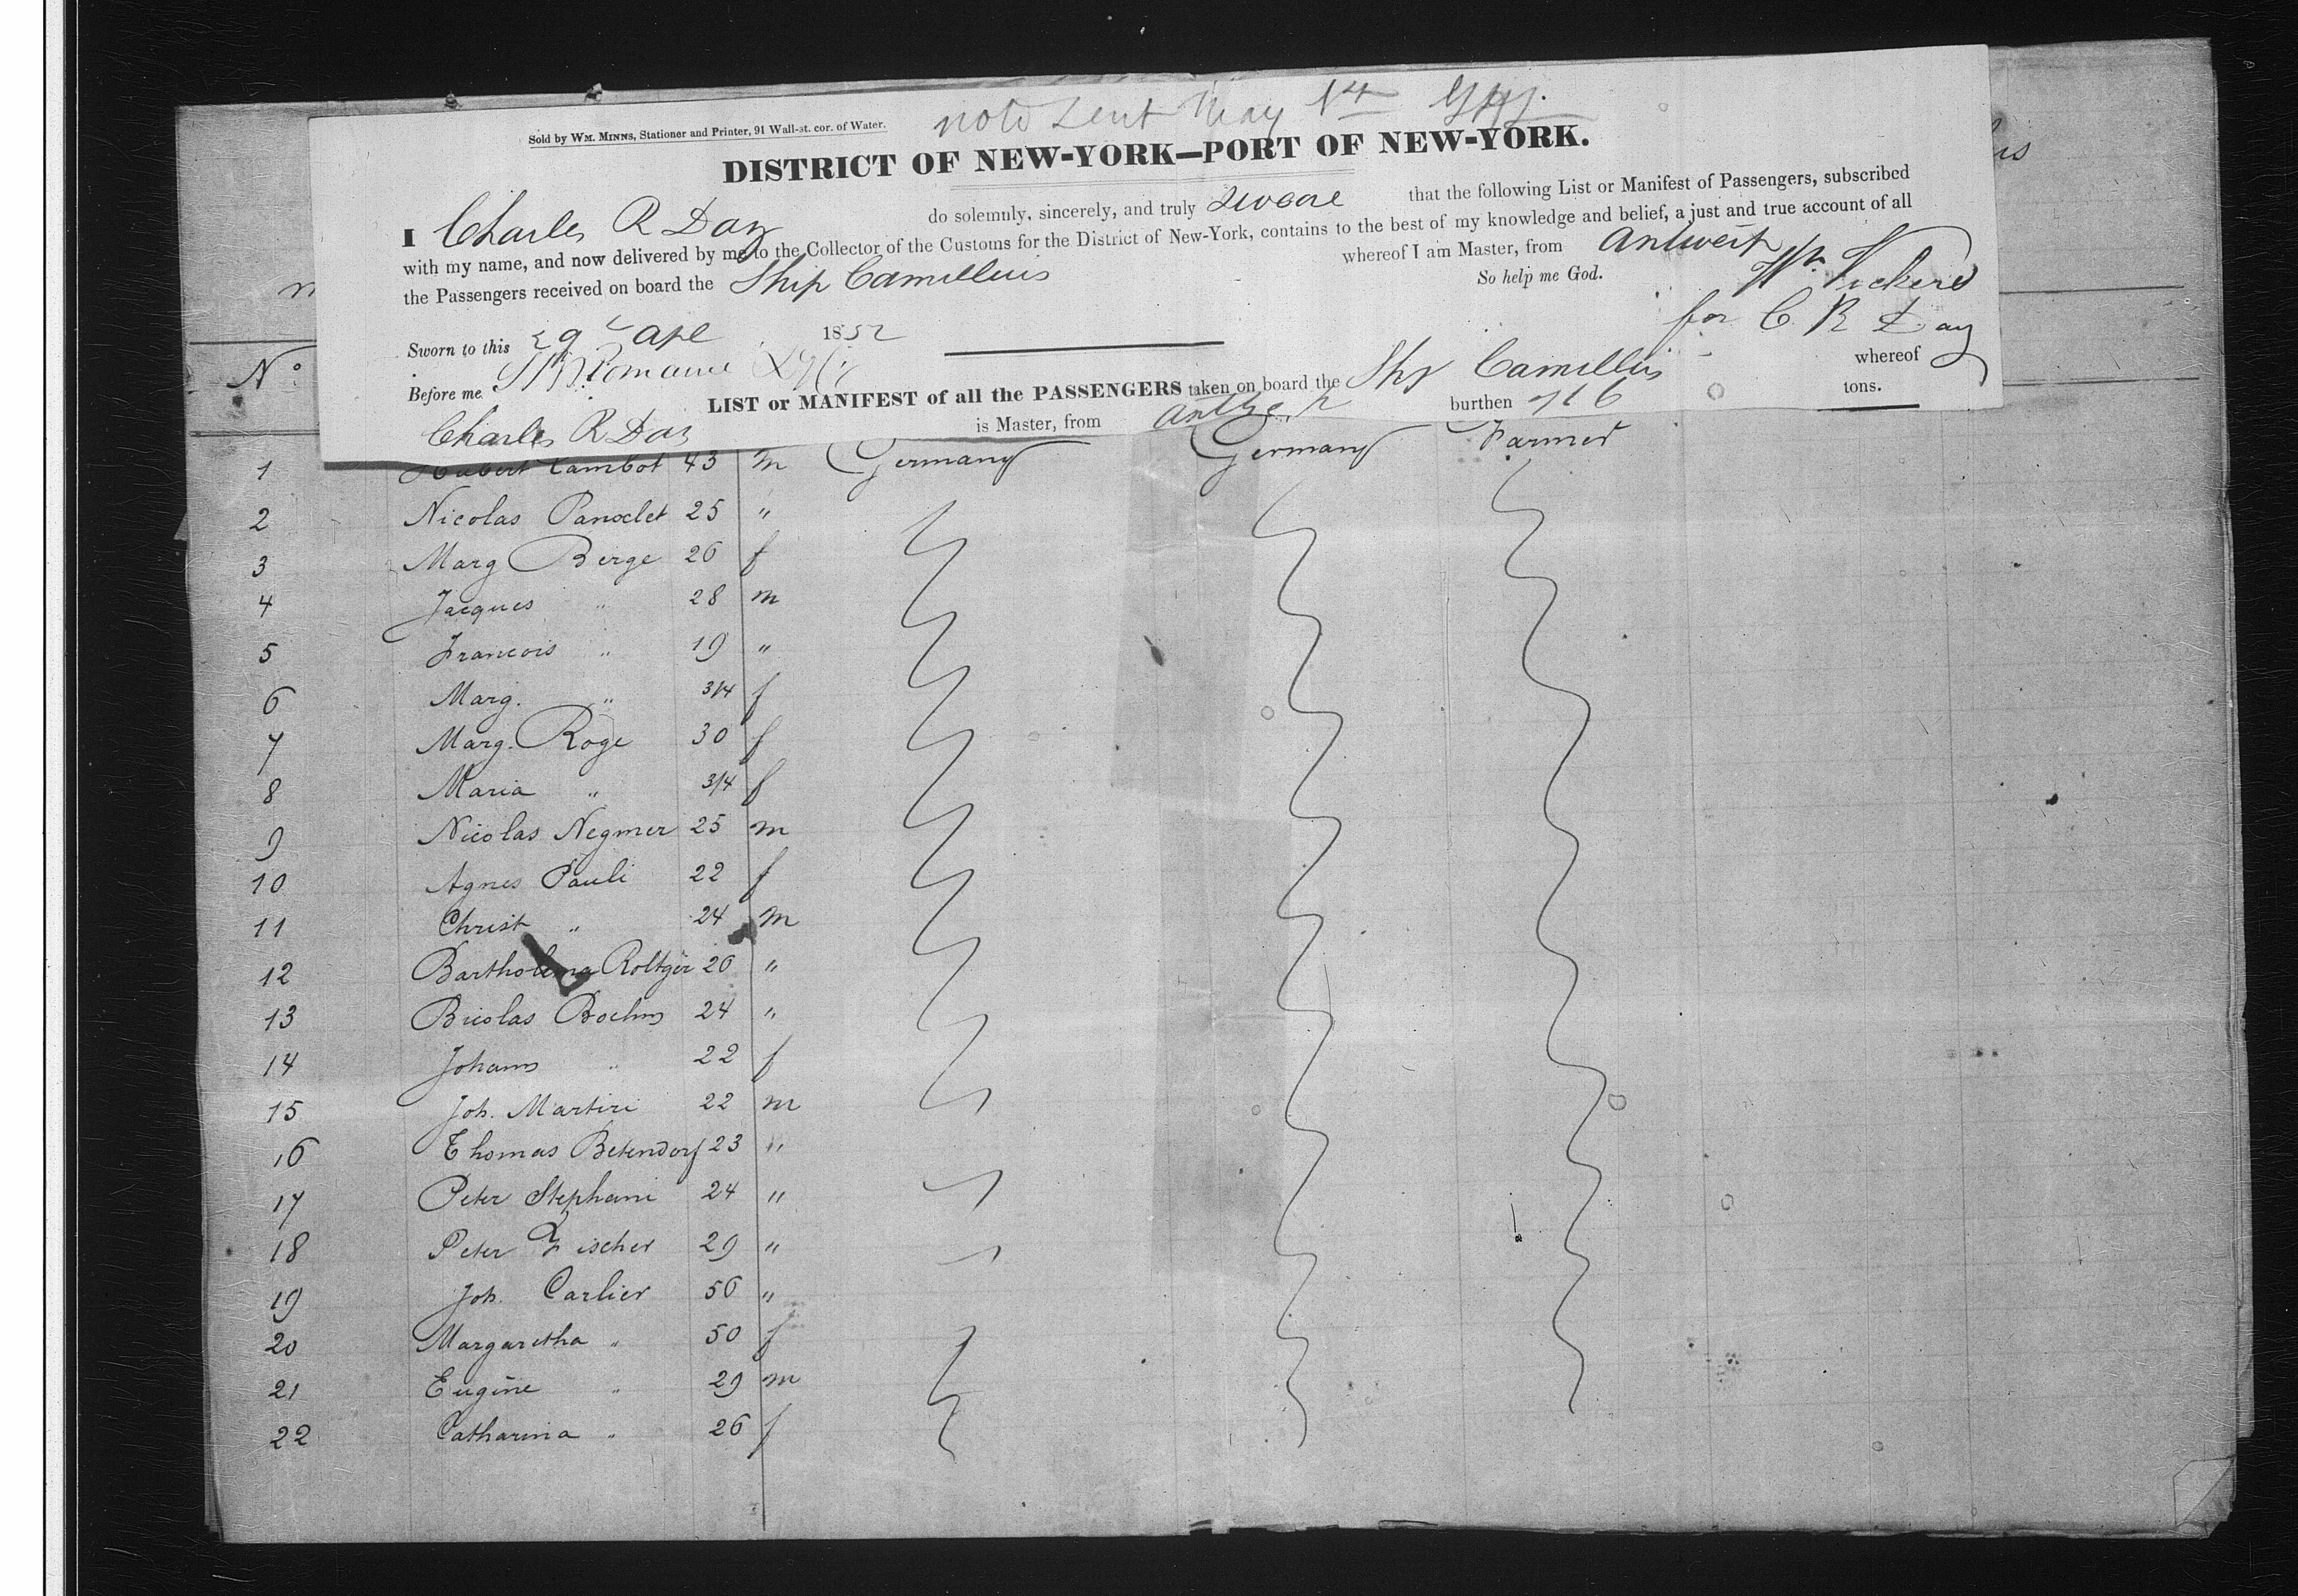 note sent May 1st
Sold by WM. MINNS, Stationer and Printer, 91 Wall-st. cor. of Water.
DISTRICT OF NEW-YORK—PORT OF NEW-YORK.
I Charles R Day do solemnly, sincerely, and truly swear that the following List or Manifest of Passengers, subscribed
with my name, and now delivered by me to the Collector of the Customs for the District of New-York, contains to the best of my knowledge and belief, a just and true account of all
the Passengers received on board the Ship Camillius whereof I am Master, from Antwerp
So help me God.
Wm Vickers
for C. R Day
Sworn to this 29 Apl 1852
Before me
LIST or MANIFEST of all the PASSENGERS taken on board the Shp Camillus whereof
Charles R Day is Master, from Antwerp burthen 716 tons.
No.
1 Hubert Cambot 43 m Germany Germany Farmer
2 Nicolas Panoclet 25 "
3 Marg Berge 26 f
4 Jacques " 28 m
5 Francois " 19 "
6 Marg. " 3/4 f
7 Marg. Roge 30 f
8 Maria " 3/4 f
9 Nicolas Negmer 25 m
10 Agnes Pauli 22 f
11 Christ " 24 m
12 Bartholema Roltger 26 "
13 Bricolas Boehm 24 "
14 Johanns " 22 f
15 Joh. Martiri 22 m
16 Thomas Betendorf 23 "
17 Peter Stephani 24 "
18 Peter Fischer 29 "
19 Joh. Carlier 56 "
20 Margaretha " 50 f
21 Eugène " 29 m
22 Catharina " 26 f